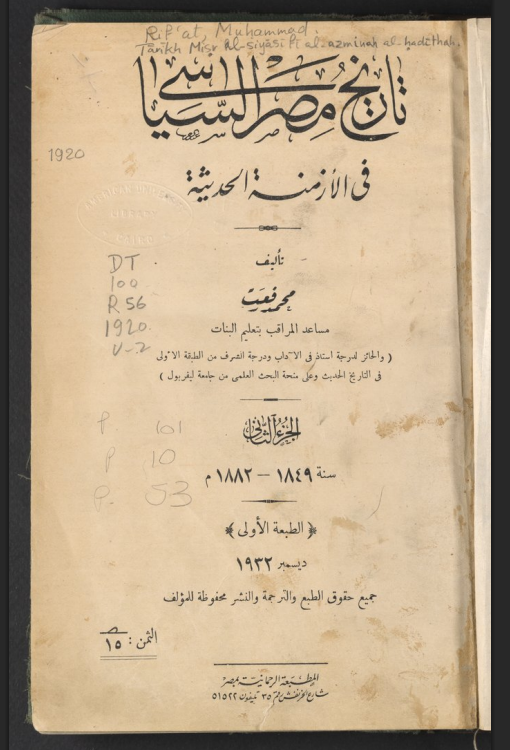 Rif'at, Muhammad.
Tārīkh Miṣr al-siyāsī fī al-azminah al-ḥadīthah.
تاريخ مصر السياسى
1920
فى الأزمنة الحديثة
تأليف
DT
100
R56
1920
V-2
محمد رفعت
مساعد المراقب بتعليم البنات
( والحائز لدرجة استاذ فى الآداب ودرجة الشرف من الطبقة الأولى
فى التاريخ الحديث وعلى منحة البحث العلمى من جامعة ليفربول )
الجزء الثانى
P. 101
P 10
P. 53
سنة ١٨٤٩ — ١٨٨٢ م
﴿ الطبعة الأولى ﴾
ديسمبر ١٩٣٢
جميع حقوق الطبع والترجمة والنشر محفوظة للمؤلف
الثمن : ١٥
المطبعة الرحمانية بمصر
شارع الخرنفش رقم ٣٥ تليفون ٥١٥٢٢